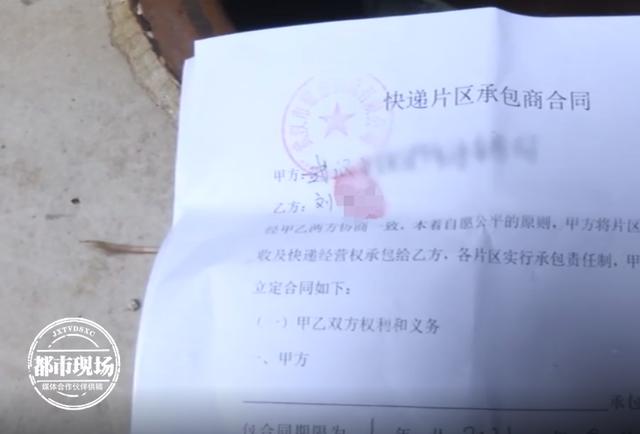 快递片区承包商合同
甲方：武汉
乙方：刘
经甲乙两方协商一致，本着自愿公平的原则，甲方将片区
收及快递经营权承包给乙方，各片区实行承包责任制，甲
立定合同如下：
（一）甲乙双方权利和义务
一、甲方
承包
合同期限为 1 年
JXTVDSXC
都市现场
媒体合作伙伴供稿